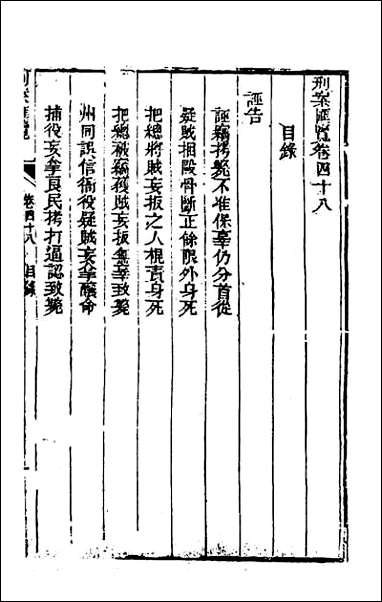 刑案匯覽卷四十八
目錄
誣告
誣竊拷斃不准保辜仍分首從
疑賊捆毆骨斷正餘限外身死
把總將賊妄扳之人棍責身死
把總被竊獲賊妄扳無辜致斃
州同誤信衙役疑賊妄拏釀命
捕役妄拏良民拷打逼認致斃
刑案匯覽
卷四十八 目錄